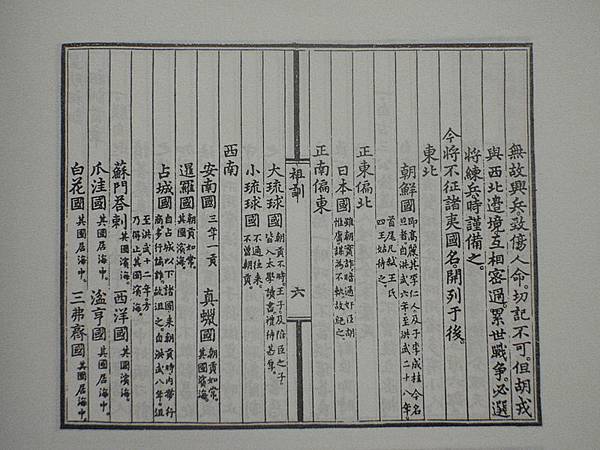 無故興兵致傷人命切記不可但胡戎
與西北邊境互相密邇累世戰爭必選
將練兵時謹備之
今將不征諸夷國名開列于後
東北
朝鮮國 即高麗其李仁人及子李成桂今名
旦者自洪武六年至洪武二十八年
首尾凡弒王氏
四王姑待之
正東偏北
日本國 雖朝實詐暗通奸臣胡
惟庸謀為不軌故絕之
正南偏東
祖訓
六
大琉球國 朝貢不時王子及陪臣之子
皆入太學讀書禮待甚厚
小琉球國 不通往來
不曾朝貢
西南
安南國 三年一貢
真蠟國 朝貢如常
其國濱海
暹羅國 朝貢如常
其國濱海
占城國 自占城以下諸國來朝貢時內帶行
商多行譎詐故沮之自洪武八年沮
至洪武十二年方
乃得止其國濱海
蘇門荅剌 其國濱海
西洋國 其國濱海
爪洼國 其國居海中
湓亨國 其國居海中
白花國 其國居海中
三弗齊國 其國居海中